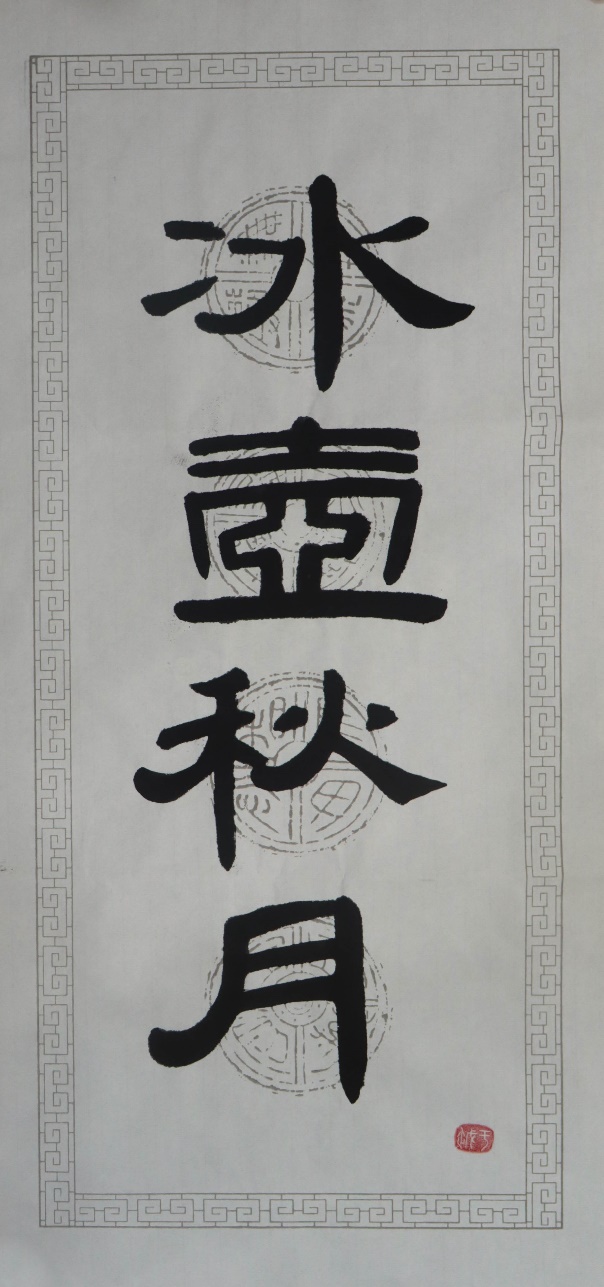 冰壺秋月